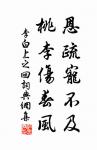 恩疏寵不及
桃李傷春風
李白上之回詞典網集